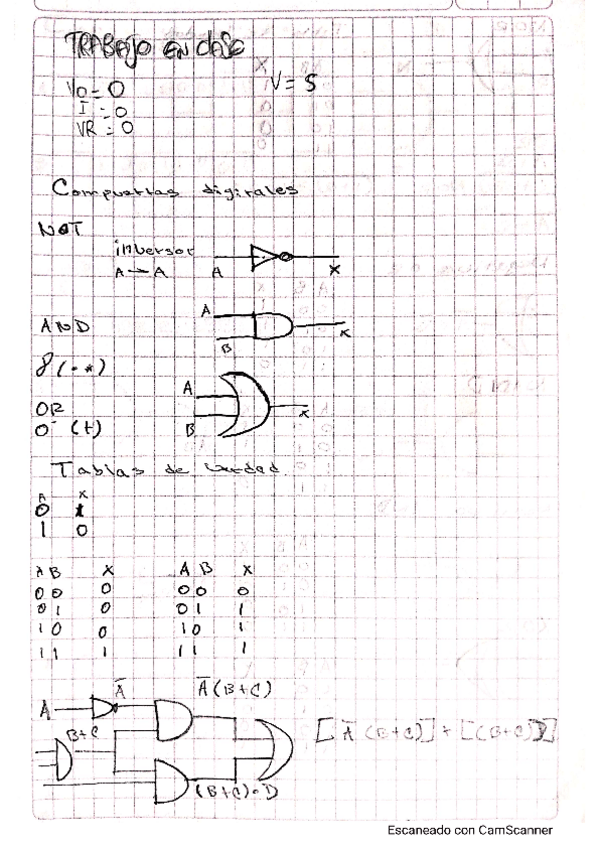 TRABAJO EN CLASE
Vo = 0 V = 5
I = 0
VR = 0
Compuertas digitales
NOT
inversor
A → A A X
AND A B X
y (· *)
OR A B X
o (+)
Tablas de verdad
A X
0 1
1 0
A B X A B X
0 0 0 0 0 0
0 1 0 0 1 1
1 0 0 1 0 1
1 1 1 1 1 1
A Ā Ā(B+C)
B+C [Ā(B+C)] + [(B+C)D]
(B+C)·D
Escaneado con CamScanner